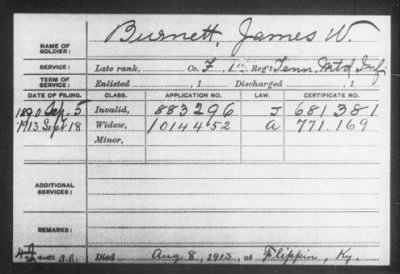 NAME OF SOLDIER: Burnett, James W.
SERVICE: Late rank, Co. F, 1st Reg't Tenn. Mtd Inf
TERM OF SERVICE: Enlisted , 1 Discharged , 1
DATE OF FILING. CLASS. APPLICATION NO. LAW. CERTIFICATE NO.
1890 Sep. 5 Invalid, 883296 J 681381
1913 Sept 18 Widow, 1014452 A 771.169
Minor,
ADDITIONAL SERVICES:
REMARKS:
Died Aug 8, 1913, at Flippin, Ky.